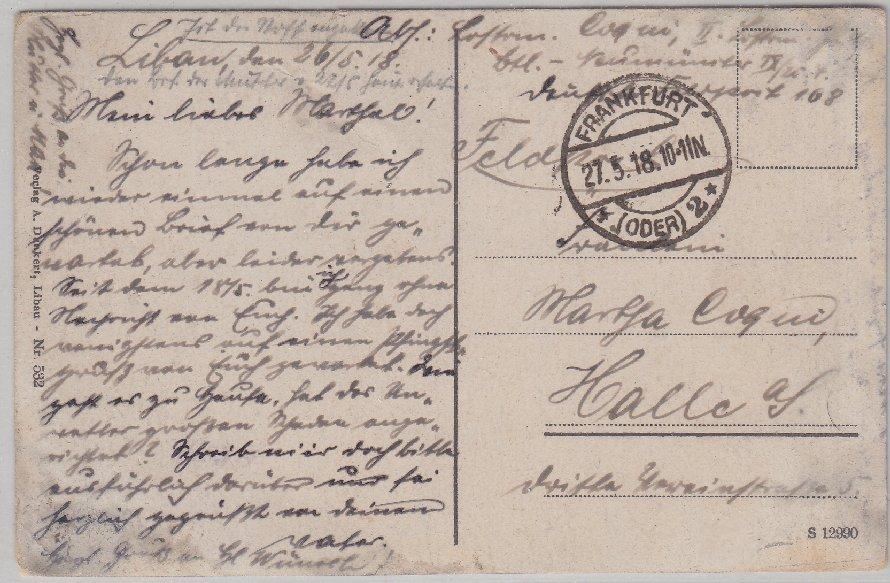 Libau, den 26/5. 18.
Mein liebes Marthal!
Schon lange habe ich
wieder einmal auf einen
schönen Brief von dir ge-
wartet, aber leider vergebens.
Seit dem 18/5. bin ich ganz ohne
Nachricht von Euch. Ich habe doch
wenigstens auf einen Pfingst-
gruß von Euch gewartet. Wie
geht es zu Hause, hat das Un-
wetter großen Schaden ange-
richtet? Schreib mir doch bitte
ausführlich darüber und sei
herzlich gegrüßt von deinem
Vater.
Verlag A. Dunkert, Libau - Nr. 532
Abs.: Coqui, II.
Btl. - Neumünster IX
168
FRANKFURT
27.5.18.10-11N.
* (ODER) 2 *
Martha Coqui,
Halle a/S.
dritte Vereinstraße
S 12990